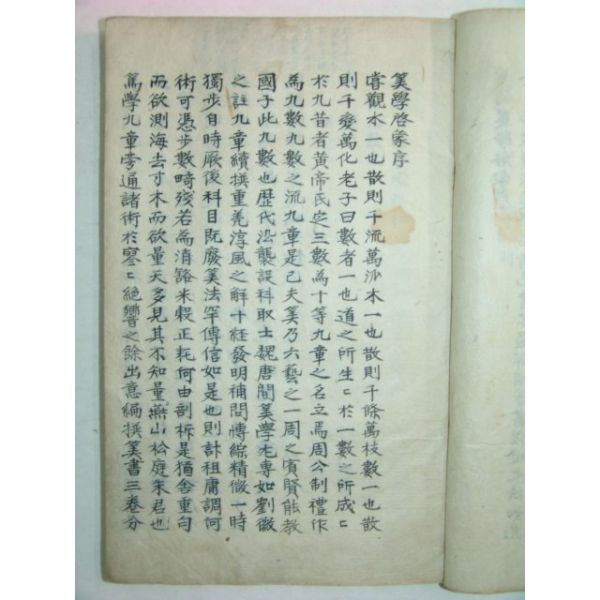 筭學啓蒙序
嘗觀水一也散則千流萬沠木一也散則千條萬枝數一也散
則千變萬化老子曰數者一也道之所生〻於一數之所成〻
於九昔者黄帝氏定三數為十等九章之名立焉周公制禮作
為九數九數之流九章是已夫筭乃六藝之一周之賓賢能教
國子此九數也歷代沿襲設科取士魏唐間筭學尤専如劉徽
之註九章續撰重差淳風之解十経發明補問愽綜精微一時
獨步自時厥後科目既廢筭法罕傳信如是也則計租庸調何
術可憑步數畸殘若為消豁米糓正耗何由剖柝是猶舍重句
而欲測海去寸木而欲量天多見其不知量燕山松庭朱君也
篤學九章旁通諸術於寥〻絶響之餘出意編撰筭書三卷分